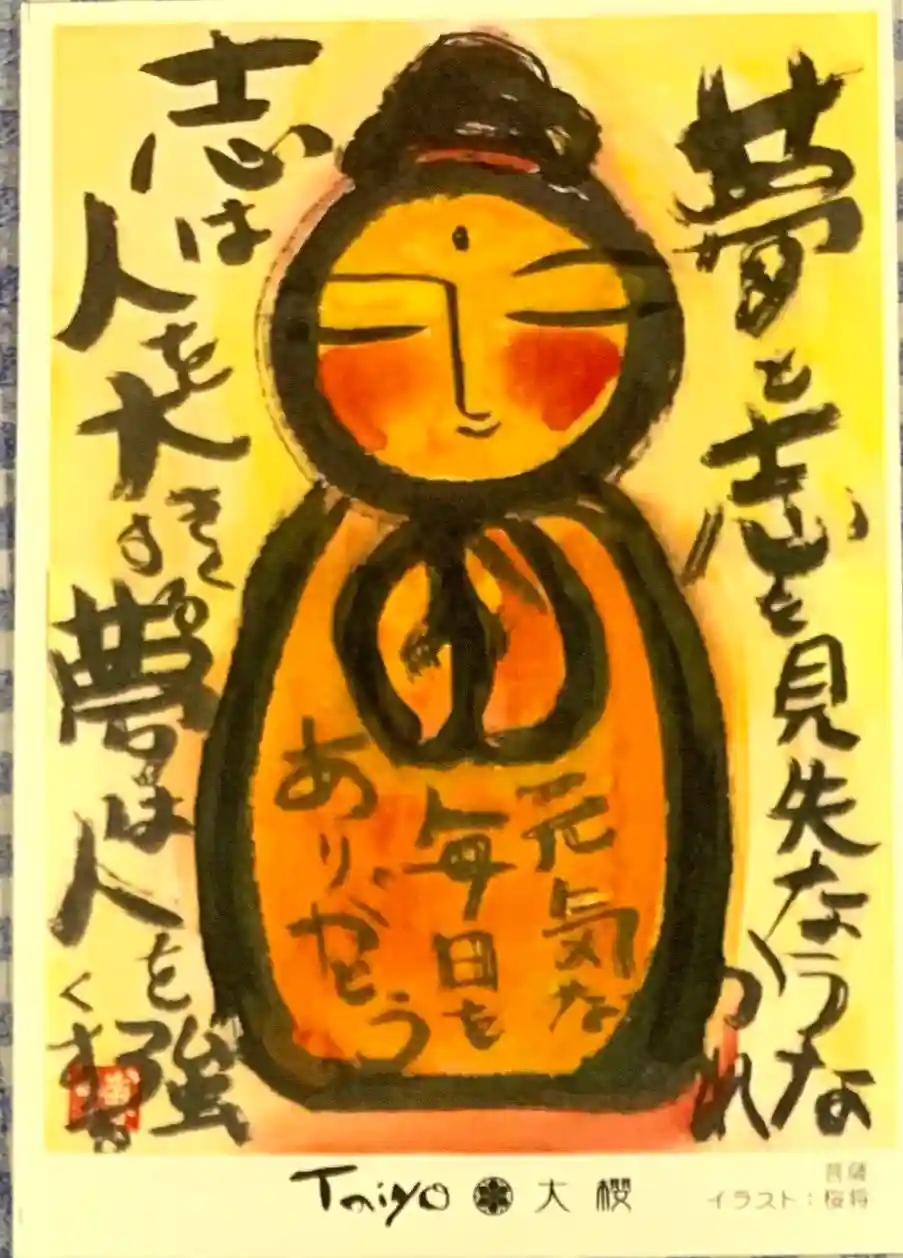 夢と志を見失なうな
かれ
元気な
毎日を
ありがとう
志は人を大きくする
夢は人を強
くする
Taiyo 大櫻
菩薩
イラスト：桜将